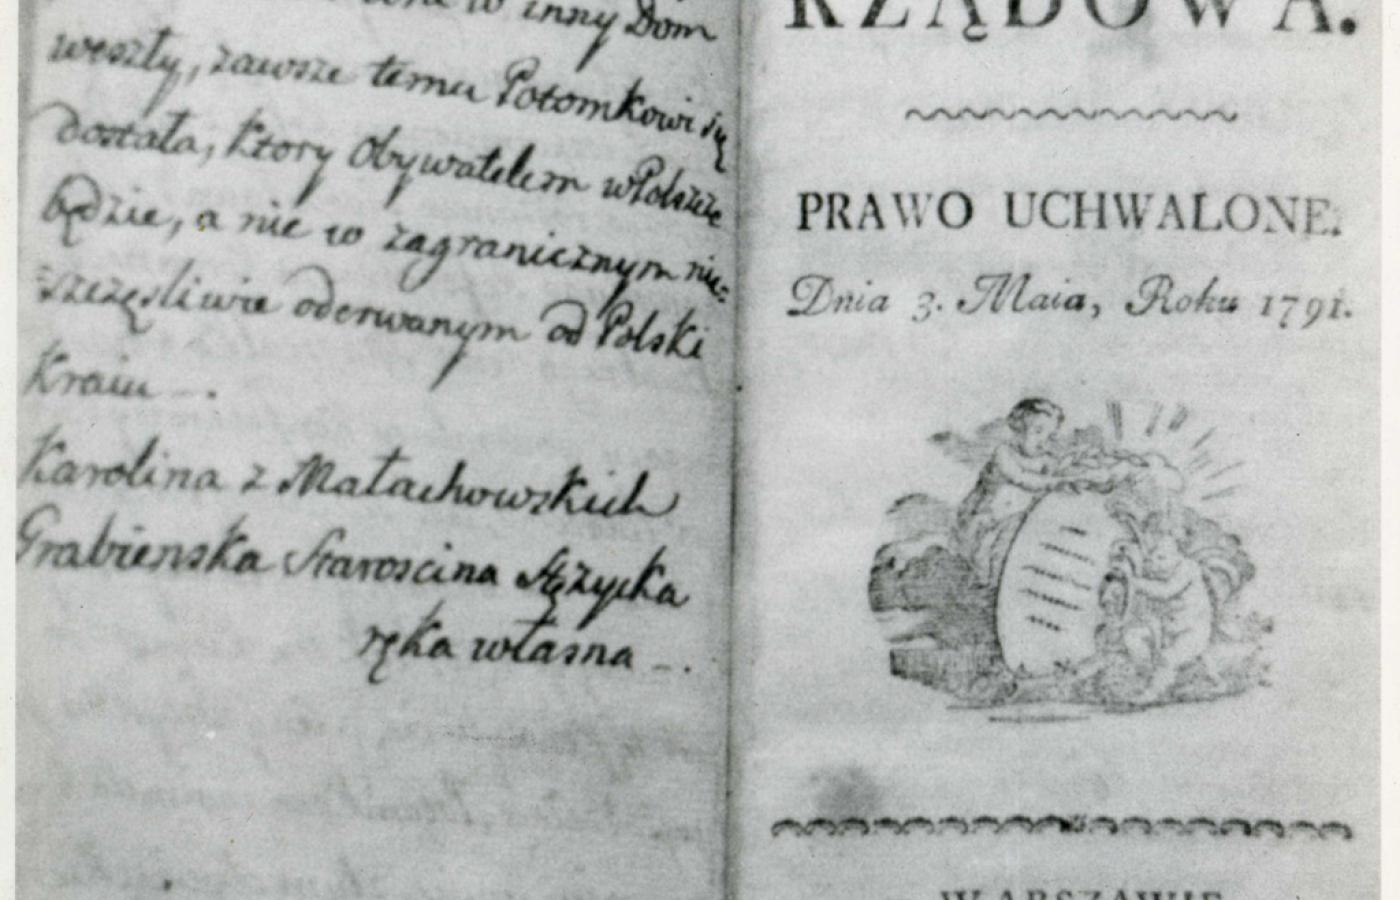 w inny Dom
weszły, zawsze temu Potomkowi się
dostała, ktory Obywatelem w Polszcze
będzie, a nie w zagranicznym nie=
=szczęsliwie oderwanym od Polski
Kraiu _ .
Karolina z Małachowskich
Grabienska Staroscina Stężycka
ręka własna _ .
RZĄDOWA.
PRAWO UCHWALONE.
Dnia 3. Maia, Roku 1791.
W WARSZAWIE